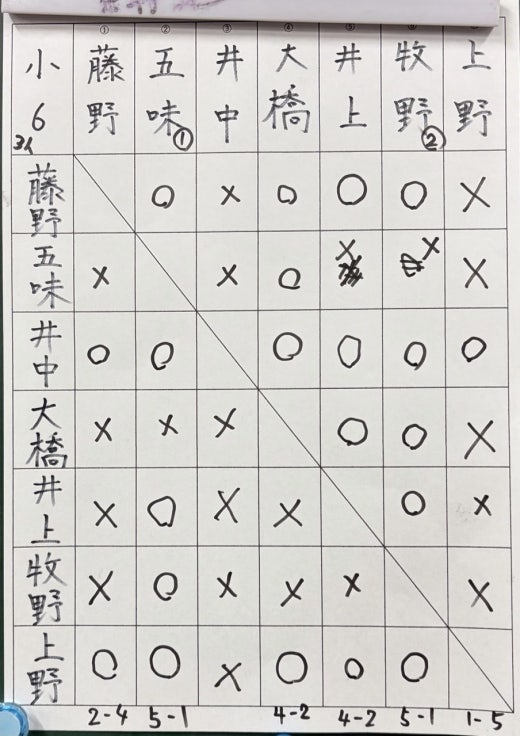 ① ② ③ ④ ⑤ ⑥
小6 藤野 五味① 井中 大橋 井上 牧野② 上野
藤野 ○ × ○ ○ ○ ×
五味 × × ○ × × ×
井中 ○ ○ ○ ○ ○ ○
大橋 × × × ○ ○ ×
井上 × ○ × × ○ ×
牧野 × ○ × × × ×
上野 ○ ○ × ○ ○ ○
2-4 5-1 4-2 4-2 5-1 1-5